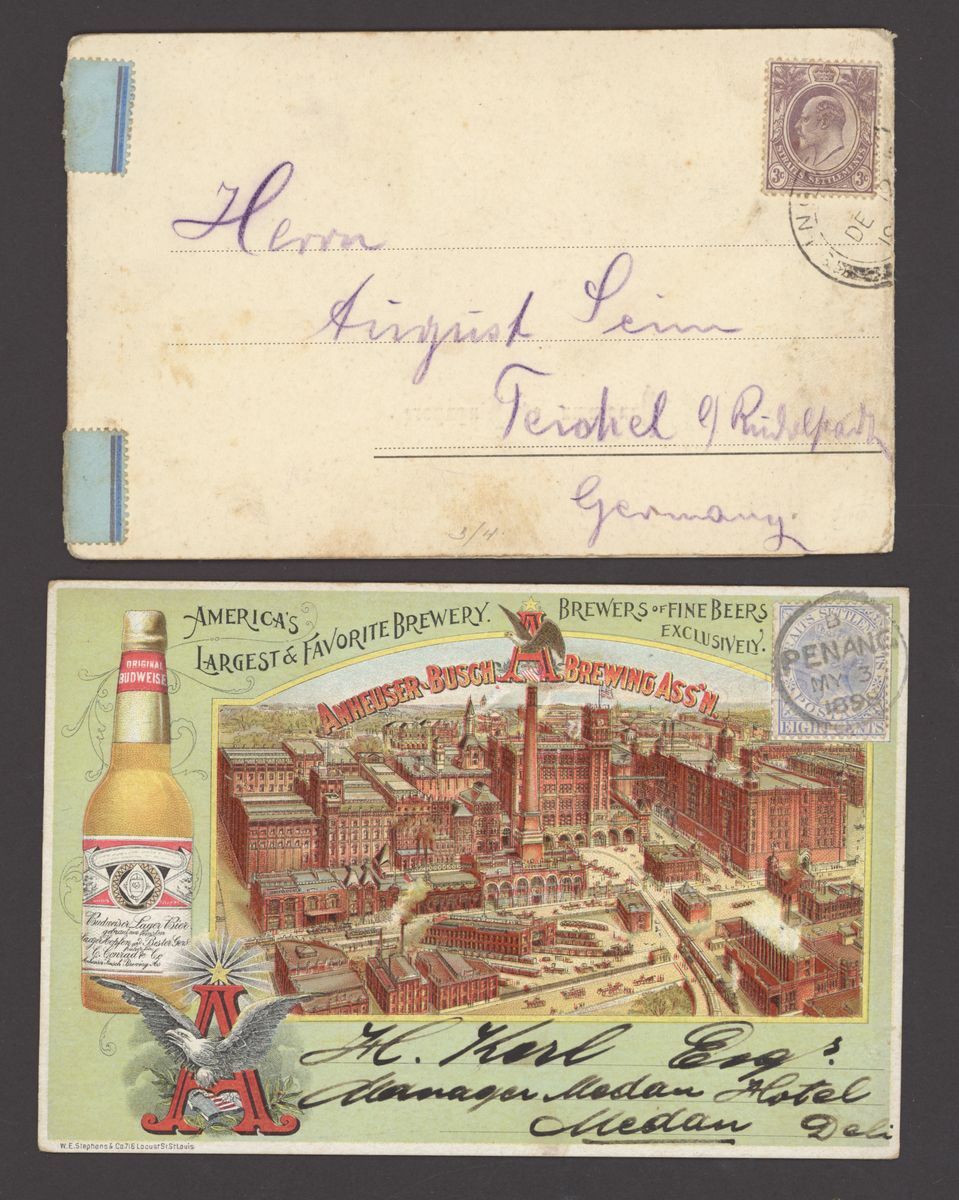 STRAITS SETTLEMENTS
3c 3c
DE
Herrn
August Seim
Teichel b/ Rudolstadt
Germany.
3/4.
AMERICA'S
LARGEST & FAVORITE BREWERY.
BREWERS OF FINE BEERS
EXCLUSIVELY.
ANHEUSER-BUSCH A BREWING ASS'N.
STRAITS SETTLEMENTS
POSTAGE
EIGHT CENTS
B
PENANG
MY 3
ORIGINAL
BUDWEISER
Budweiser Lager Bier
C. Conrad & Co
H. Karl Esqr.
Manager Medan Hotel
Medan Deli
W.E. Stephens & Co. 716 Locust St. St. Louis